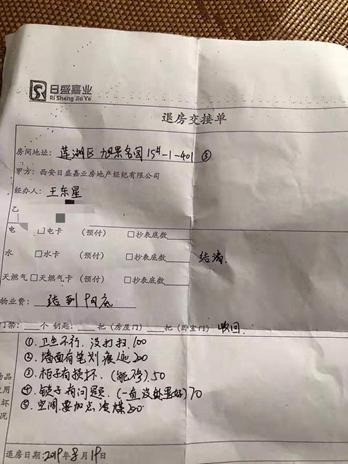 日盛嘉业
Ri Sheng Jia Ye
退房交接单
房间地址: 莲湖区 旭景名园15#-1-401 ③
甲方: 西安日盛嘉业房地产经纪有限公司
经办人: 王东星
乙
电 □电卡 (预付) □抄表底数
水 □水卡 (预付) □抄表底数 结清
天然气□天然气卡(预付) □抄表底数
物业费: 结到 9月底
门禁: 个 钥匙: 把(房屋门) 把(卧室门)
①.卫生不行. 没打扫.100
②.墙面有笔划痕迹 200
③.柜子有损坏. 50
④.锁子有问题. 70
⑤.空调要加氟 冷媒200
退房日期:2019年8月19日